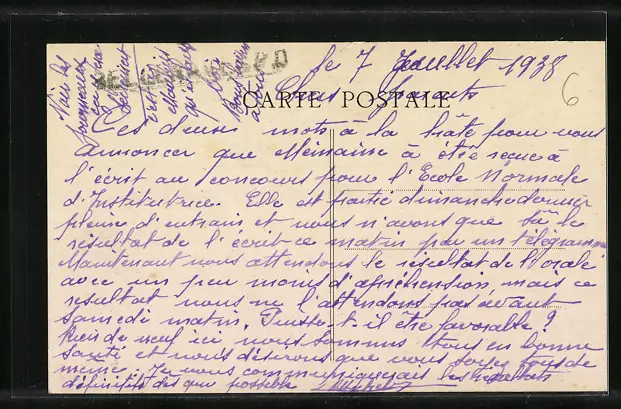 le 7 Juillet 1938
CARTE POSTALE
Chers parents
Ces deux mots à la hâte pour vous
annoncer que Germaine à été reçue à
l'écrit au concours pour l'Ecole Normale
d'Institutrice. Elle est partie dimanche dernier
pleine d'entrain et nous n'avons que su le
résultat de l'écrit ce matin par un télégramme
Maintenant nous attendons le résultat de l'orale
avec un peu moins d'appréhension, mais ce
resultat nous ne l'attendons pas avant
samedi matin. Puisse-t-il être favorable ?
Rien de neuf ici nous sommes tous en bonne
santé et nous désirons que vous soyez tous de
même. Je vous communiquerais les résultats
définitifs dès que possible
6